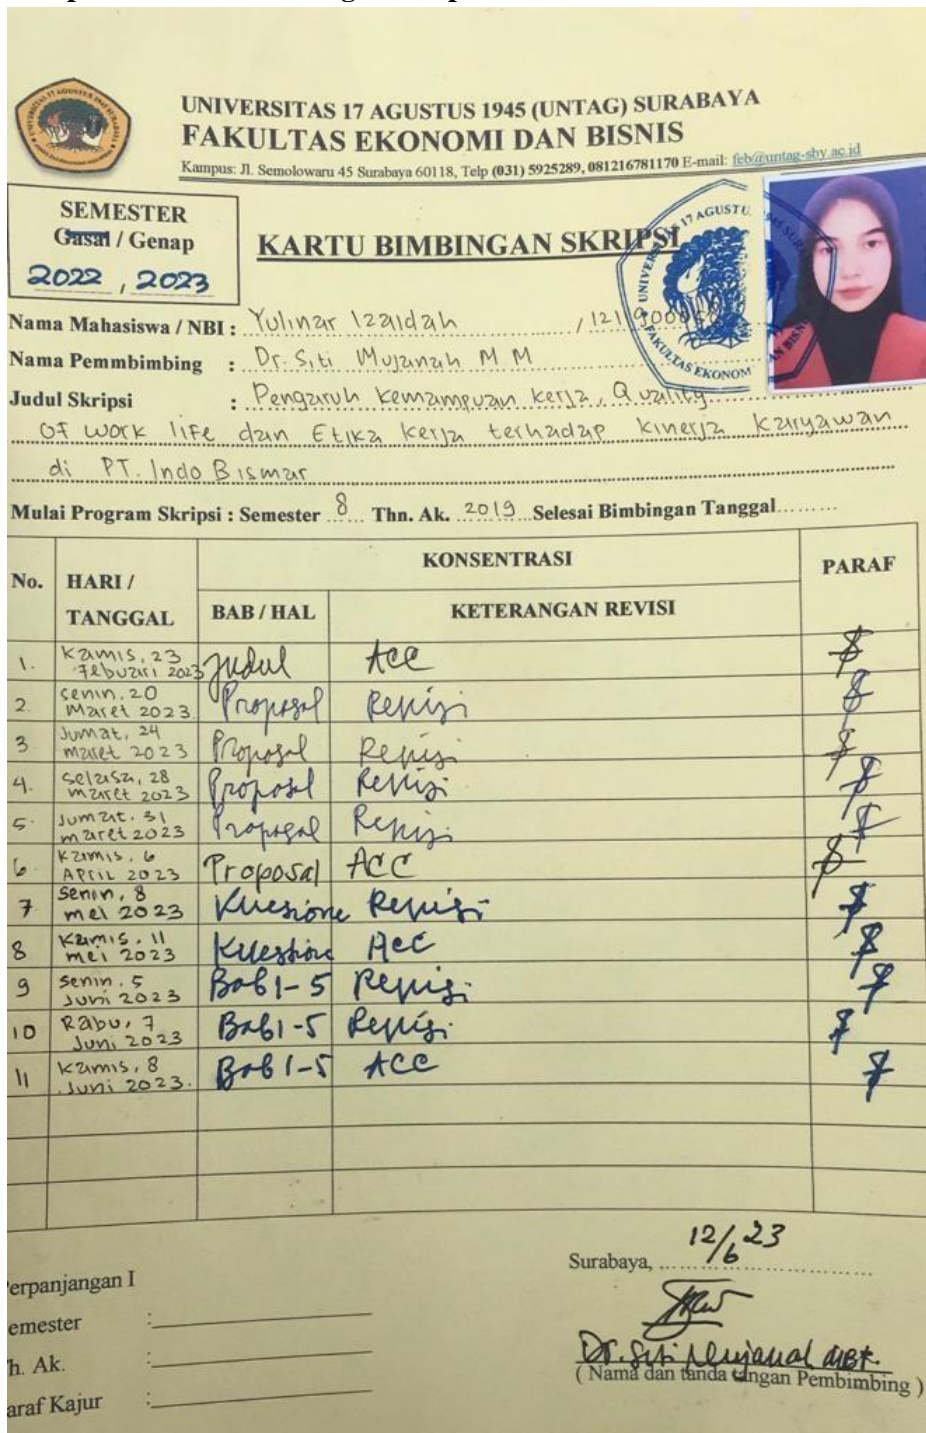 UNIVERSITAS 17 AGUSTUS 1945 (UNTAG) SURABAYA
FAKULTAS EKONOMI DAN BISNIS
Kampus: Jl. Semolowaru 45 Surabaya 60118, Telp (031) 5925289, 081216781170 E-mail: feb@untag-sby.ac.id
SEMESTER
Gasal / Genap
2022, 2023
KARTU BIMBINGAN SKRIPSI
Nama Mahasiswa / NBI : Yulinar Izaidah /
Nama Pemmbimbing : Dr. Siti Mujanah M M
Judul Skripsi : Pengaruh Kemampuan Kerja, Quality
OF work life dan Etika Kerja terhadap Kinerja Karyawan
di PT. Indo Bismar
Mulai Program Skripsi : Semester 8 Thn. Ak. 2019 Selesai Bimbingan Tanggal.........
KONSENTRASI
No. HARI / TANGGAL BAB / HAL KETERANGAN REVISI PARAF
1. Kamis, 23 Febuari 2023 Judul ACC
2. Senin, 20 Maret 2023 Proposal Revisi
3. Jumat, 24 maret 2023 Proposal Revisi
4. Selasa, 28 maret 2023 Proposal Revisi
5. Jumat, 31 maret 2023 Proposal Revisi
6. Kamis, 6 APRIL 2023 Proposal ACC
7 Senin, 8 mei 2023 Kuesione Revisi
8 Kamis, 11 mei 2023 Kuestione ACC
9 Senin, 5 Juni 2023 Bab 1-5 Revisi
10 Rabu, 7 Juni 2023 Bab 1-5 Revisi
11 Kamis, 8 Juni 2023. Bab 1-5 ACC
Surabaya, 12/6 23
erpanjangan I
emester :
h. Ak. :
araf Kajur :
Dr. Siti Mujanah
( Nama dan tanda tangan Pembimbing )